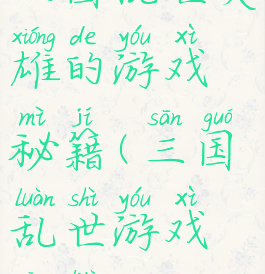 xióng de yóu xì
雄的游戏
mì jí sān guó
秘籍(三国
luàn shì yóu xì
乱世游戏